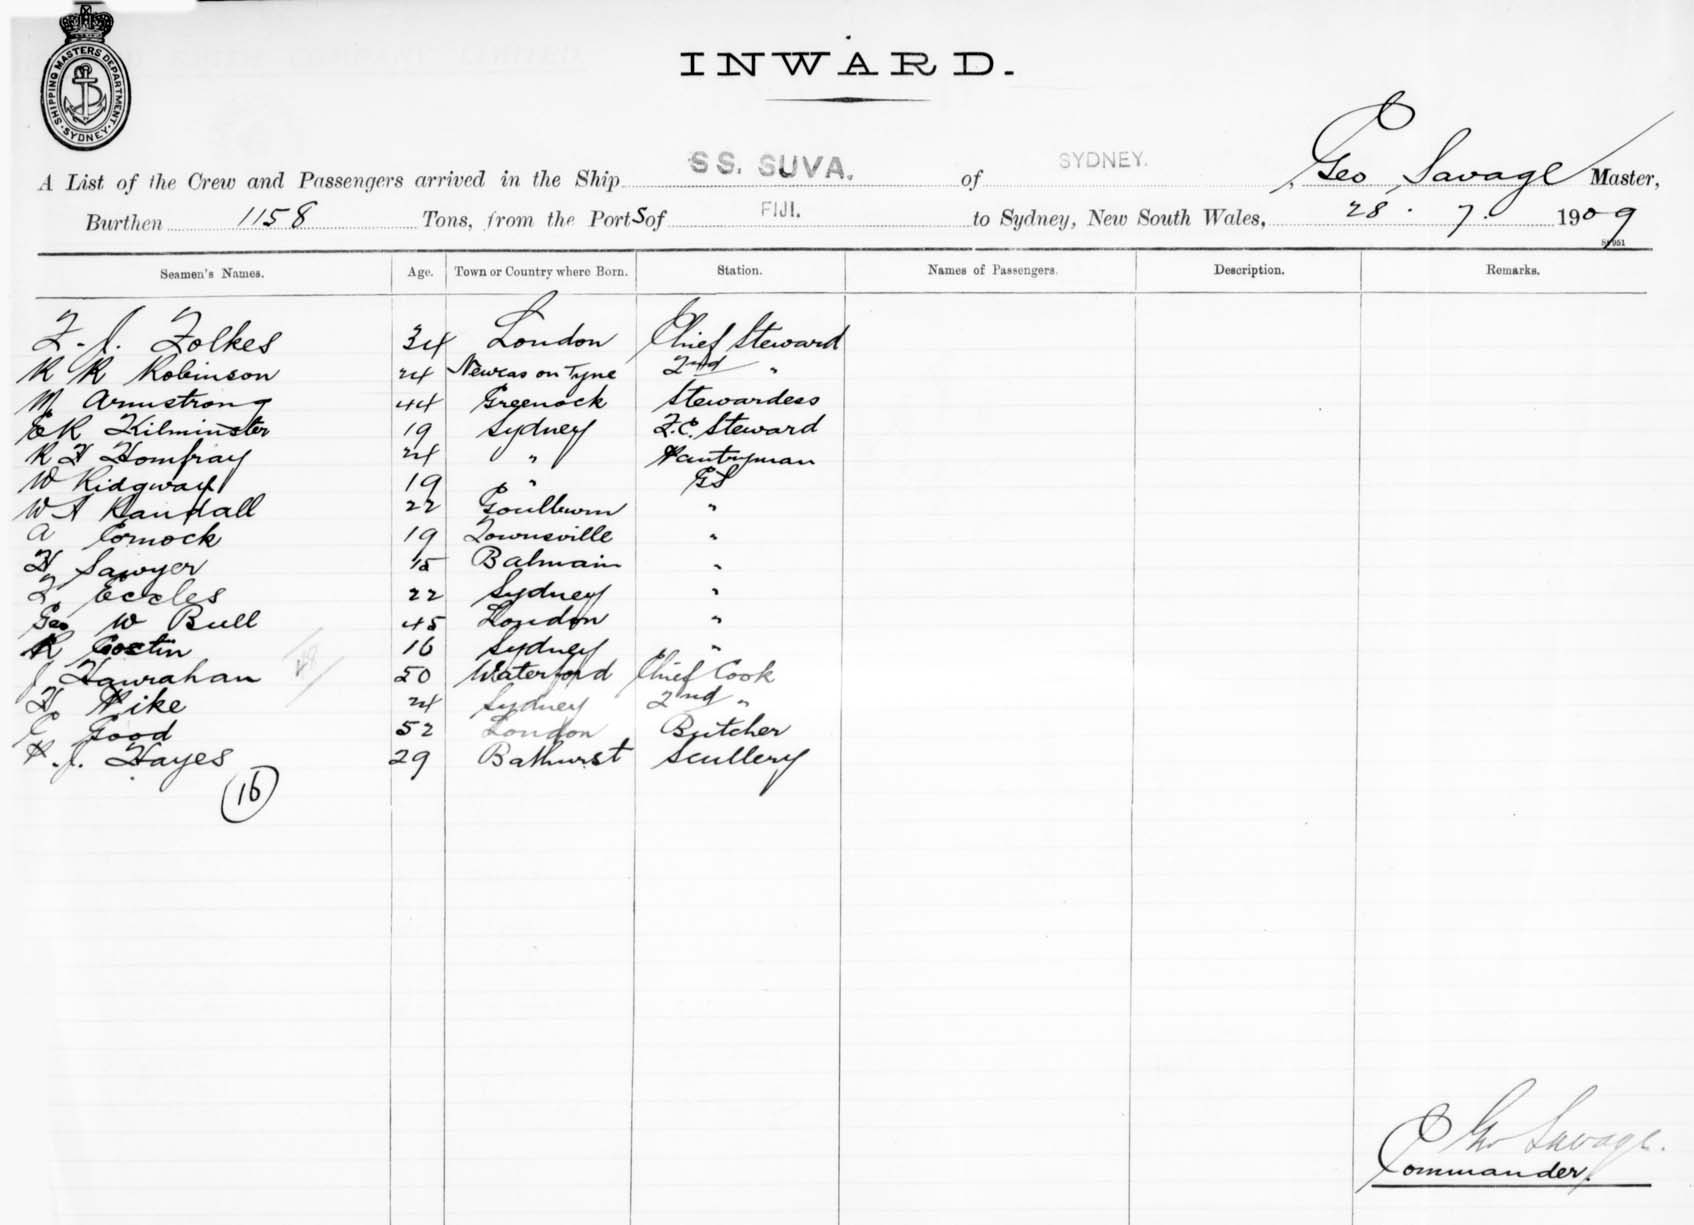 SHIPPING MASTERS DEPARTMENT
SYDNEY
INWARD.
A List of the Crew and Passengers arrived in the Ship SS. SUVA. of SYDNEY. Geo Savage Master,
Burthen 1158 Tons, from the Ports of FIJI. to Sydney, New South Wales, 28 . 7. 1909
Seamen's Names. Age. Town or Country where Born. Station. Names of Passengers. Description. Remarks.
F. J. Folkes 34 London Chief Steward
R R Robinson 24 Newcas on Tyne 2nd "
M Armstrong 44 Greenock Stewardess
E R Kilminster 19 Sydney F.C. Steward
R H Homfray 24 " Pantryman
W Ridgway 19 " GS
W A Randall 22 Goulburn "
A Cornock 19 Townsville "
H Sawyer 15 Balmain "
F Eccles 22 Sydney "
Geo W Bull 45 London "
R Costin 16 Sydney "
J Hanrahan 50 Waterford Chief Cook
H Pike 24 Sydney 2nd "
C Good 52 London Butcher
P. J. Hayes 29 Bathurst Scullery
16
Geo Savage.
Commander.